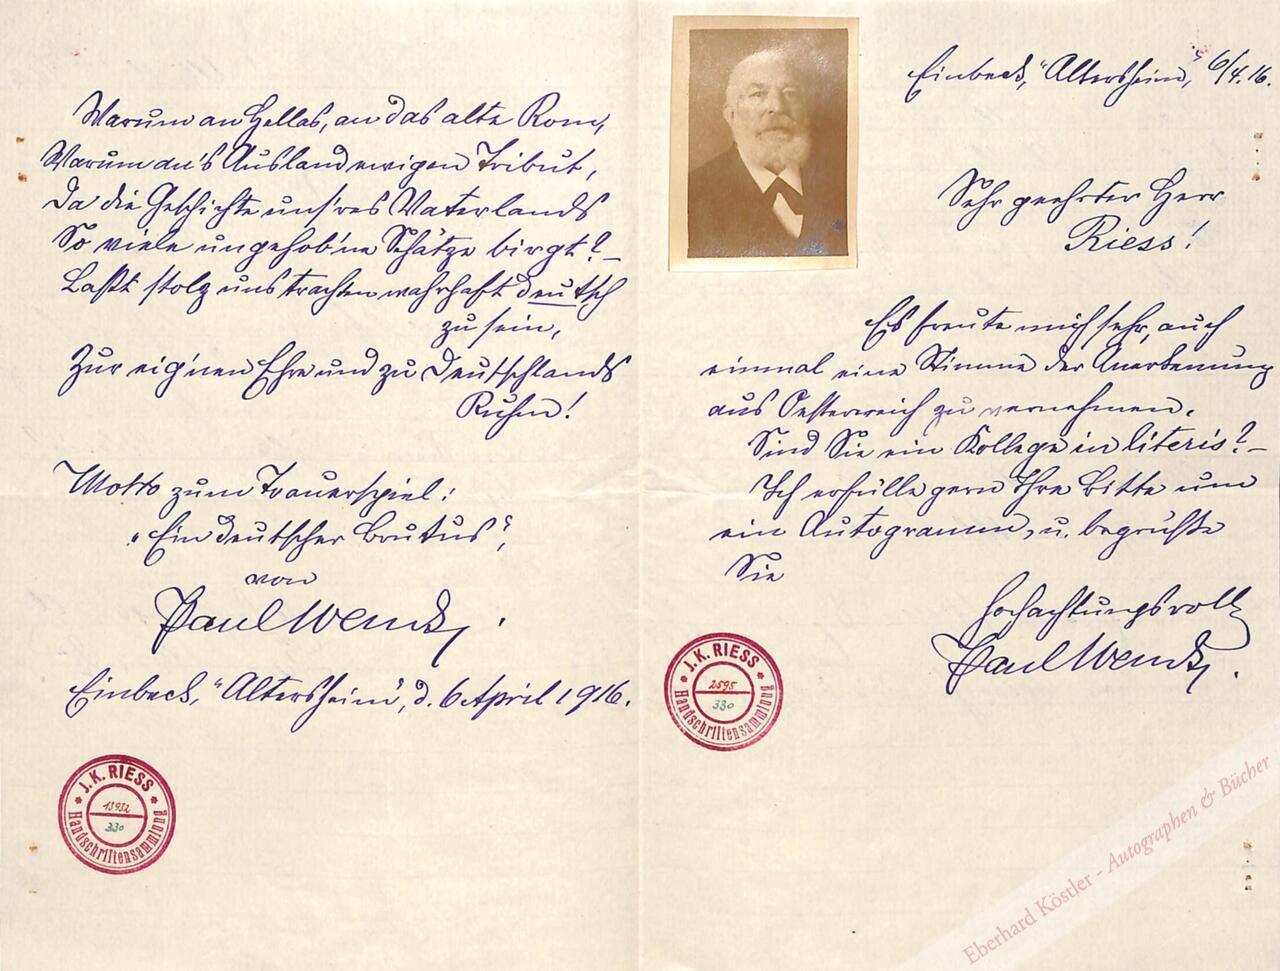 Warum an Hellas, an das alte Rom,
Warum an's Ausland ewigen Tribut,
Da die Geschichte uns'res Vaterlands
So viele ungehob'ne Schätze birgt? –
Laßt stolz uns trachten wahrhaft deutsch
zu sein,
Zur eig'nen Ehre und zu Deutschlands
Ruhm!
Motto zum Trauerspiel:
„Ein deutscher Brutus",
von
Paul Wendt.
Einbeck, „Altersheim", d. 6 April 1916.
J. K. RIESS
13932
330
Handschriftensammlung
Einbeck, „Altersheim," 6/4.16.
Sehr geehrter Herr
Riess!
Es freute mich sehr, auch
einmal eine Stimme der Anerkennung
aus Oesterreich zu vernehmen.
Sind Sie ein Kollege in literis? –
Ich erfülle gern Ihre Bitte um
ein Autogramm, u. begrüße
Sie
hochachtungsvoll
Paul Wendt.
J. K. RIESS
2595
330
Handschriftensammlung
Eberhard Köstler - Autographen & Bücher